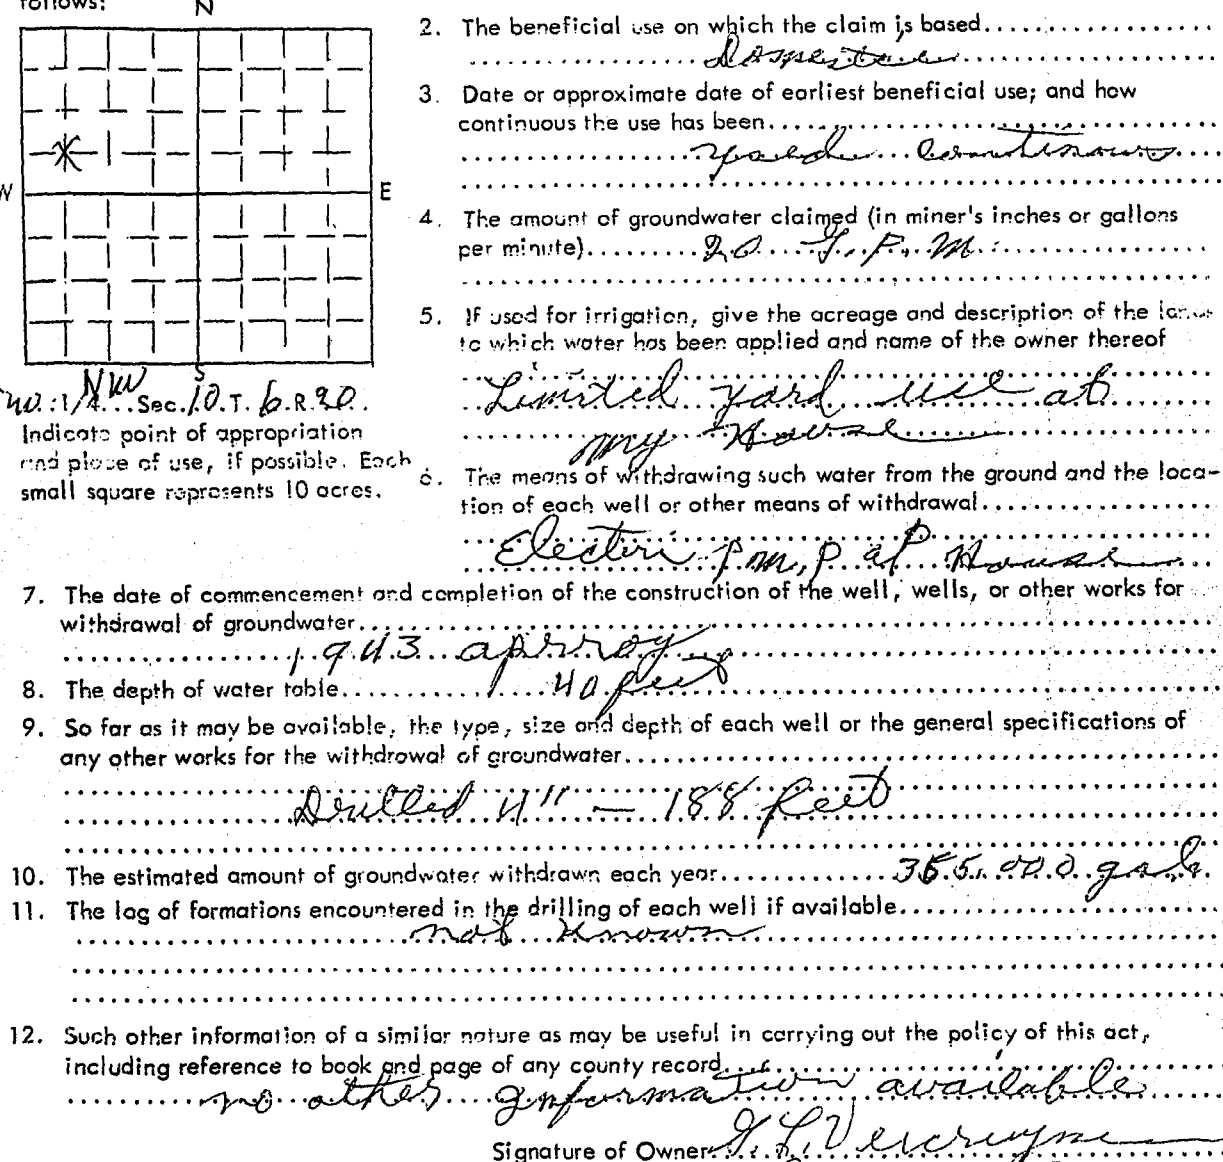 follows:
N
W
E
S
NW
1/4...Sec.10.T.6.R.20.
Indicate point of appropriation
and place of use, if possible. Each
small square represents 10 acres.
2. The beneficial use on which the claim is based
Domestic
3. Date or approximate date of earliest beneficial use; and how
continuous the use has been
continuous
4. The amount of groundwater claimed (in miner's inches or gallons
per minute) 20 G.P.M.
5. If used for irrigation, give the acreage and description of the lands
to which water has been applied and name of the owner thereof
Limited yard use at
my House
6. The means of withdrawing such water from the ground and the loca-
tion of each well or other means of withdrawal
Electri pmp at House
7. The date of commencement and completion of the construction of the well, wells, or other works for
withdrawal of groundwater
1943 approx
8. The depth of water table 40 feet
9. So far as it may be available, the type, size and depth of each well or the general specifications of
any other works for the withdrawal of groundwater
Drilled 4" — 188 feet
10. The estimated amount of groundwater withdrawn each year 365,000 gal.
11. The log of formations encountered in the drilling of each well if available
not known
12. Such other information of a similar nature as may be useful in carrying out the policy of this act,
including reference to book and page of any county record
no other information available
Signature of Owner G. L. Vercruyne